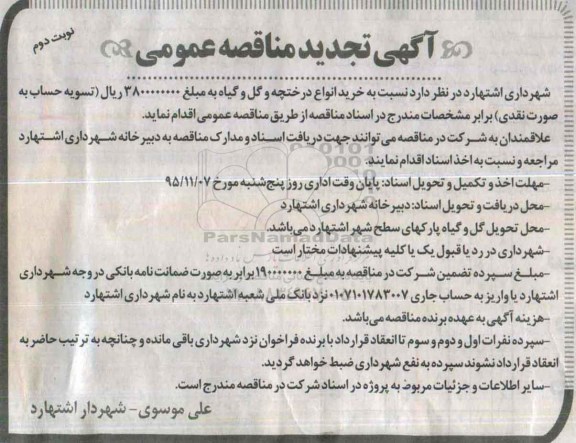 نوبت دوم
آگهی تجدید مناقصه عمومی
شهرداری اشتهارد در نظر دارد نسبت به خرید انواع درختچه و گل و گیاه به مبلغ ۳۸۰۰۰۰۰۰۰۰ ریال (تسویه حساب به
صورت نقدی) برابر مشخصات مندرج در اسناد مناقصه از طریق مناقصه عمومی اقدام نماید.
علاقمندان به شرکت در مناقصه می توانند جهت دریافت اسناد و مدارک مناقصه به دبیرخانه شهرداری اشتهارد
مراجعه و نسبت به اخذ اسناد اقدام نمایند.
-مهلت اخذ و تکمیل و تحویل اسناد: پایان وقت اداری روز پنج شنبه مورخ ۹۵/۱۱/۰۷
-محل دریافت و تحویل اسناد: دبیرخانه شهرداری اشتهارد
-محل تحویل گل و گیاه پارکهای سطح شهر اشتهارد می باشد.
-شهرداری در رد یا قبول یک یا کلیه پیشنهادات مختار است
-مبلغ سپرده تضمین شرکت در مناقصه به مبلغ ۱۹۰۰۰۰۰۰۰ برابر به صورت ضمانت نامه بانکی در وجه شهرداری
اشتهارد یا واریز به حساب جاری ۰۱۰۷۱۰۱۷۸۳۰۰۷ نزد بانک ملی شعبه اشتهارد به نام شهرداری اشتهارد
-هزینه آگهی به عهده برنده مناقصه می باشد.
-سپرده نفرات اول و دوم و سوم تا انعقاد قرارداد با برنده فراخوان نزد شهرداری باقی مانده و چنانچه به ترتیب حاضر به
انعقاد قرارداد نشوند سپرده به نفع شهرداری ضبط خواهد گردید.
-سایر اطلاعات و جزئیات مربوط به پروژه در اسناد شرکت در مناقصه مندرج است.
علی موسوی- شهردار اشتهارد
ParsNamadData